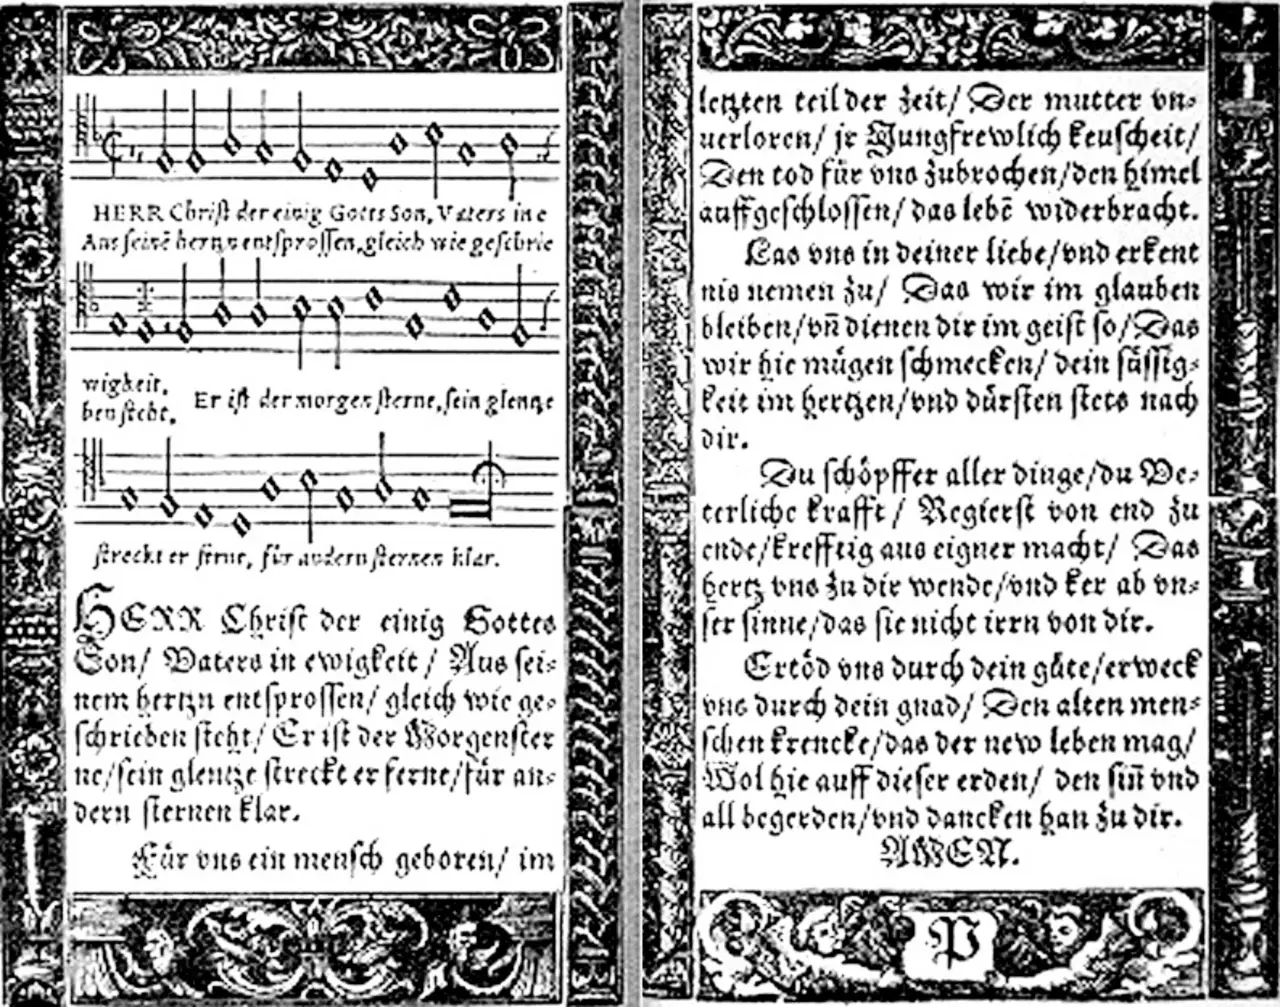 HERR Chriſt der einig Gotts Son, Vaters in e
Aus ſeinē hertzn entſproſſen, gleich wie geſchrie
wigkeit.
ben ſteht.
Er iſt der morgen ſterne, ſein glentze
ſtreckt er ferne, für andern ſternen klar.
HERR Chriſt der einig Gottes
Son/ Vaters in ewigkeit / Aus ſei⸗
nem hertzn entſproſſen/ gleich wie ge⸗
ſchrieben ſteht/ Er iſt der Morgenſter
ne/ſein glentze ſtreckt er ferne/für an⸗
dern ſternen klar.
Für vns ein menſch geboren/ im
letzten teil der zeit/ Der mutter vn⸗
uerloren/ jr Jungfrewlich keuſcheit/
Den tod für vns zubrochen/den himel
auffgeſchloſſen/ das lebē widerbracht.
Las vns in deiner liebe/vnd erkent
nis nemen zu/ Das wir im glauben
bleiben/vn̄ dienen dir im geiſt ſo/Das
wir hie mügen ſchmecken/ dein ſüſſig⸗
keit im hertzen/vnd dürſten ſtets nach
dir.
Du ſchöpffer aller dinge/du Ve⸗
terliche krafft/ Regierſt von end zu
ende/krefftig aus eigner macht/ Das
hertz vns zu dir wende/vnd ker ab vn⸗
ſer ſinne/das ſie nicht irrn von dir.
Ertöd vns durch dein güte/erweck
vns durch dein gnad/ Den alten men⸗
ſchen krencke/das der new leben mag/
Wol hie auff dieſer erden/ den ſin̄ vnd
all begerden/vnd dancken han zu dir.
AMEN.
P